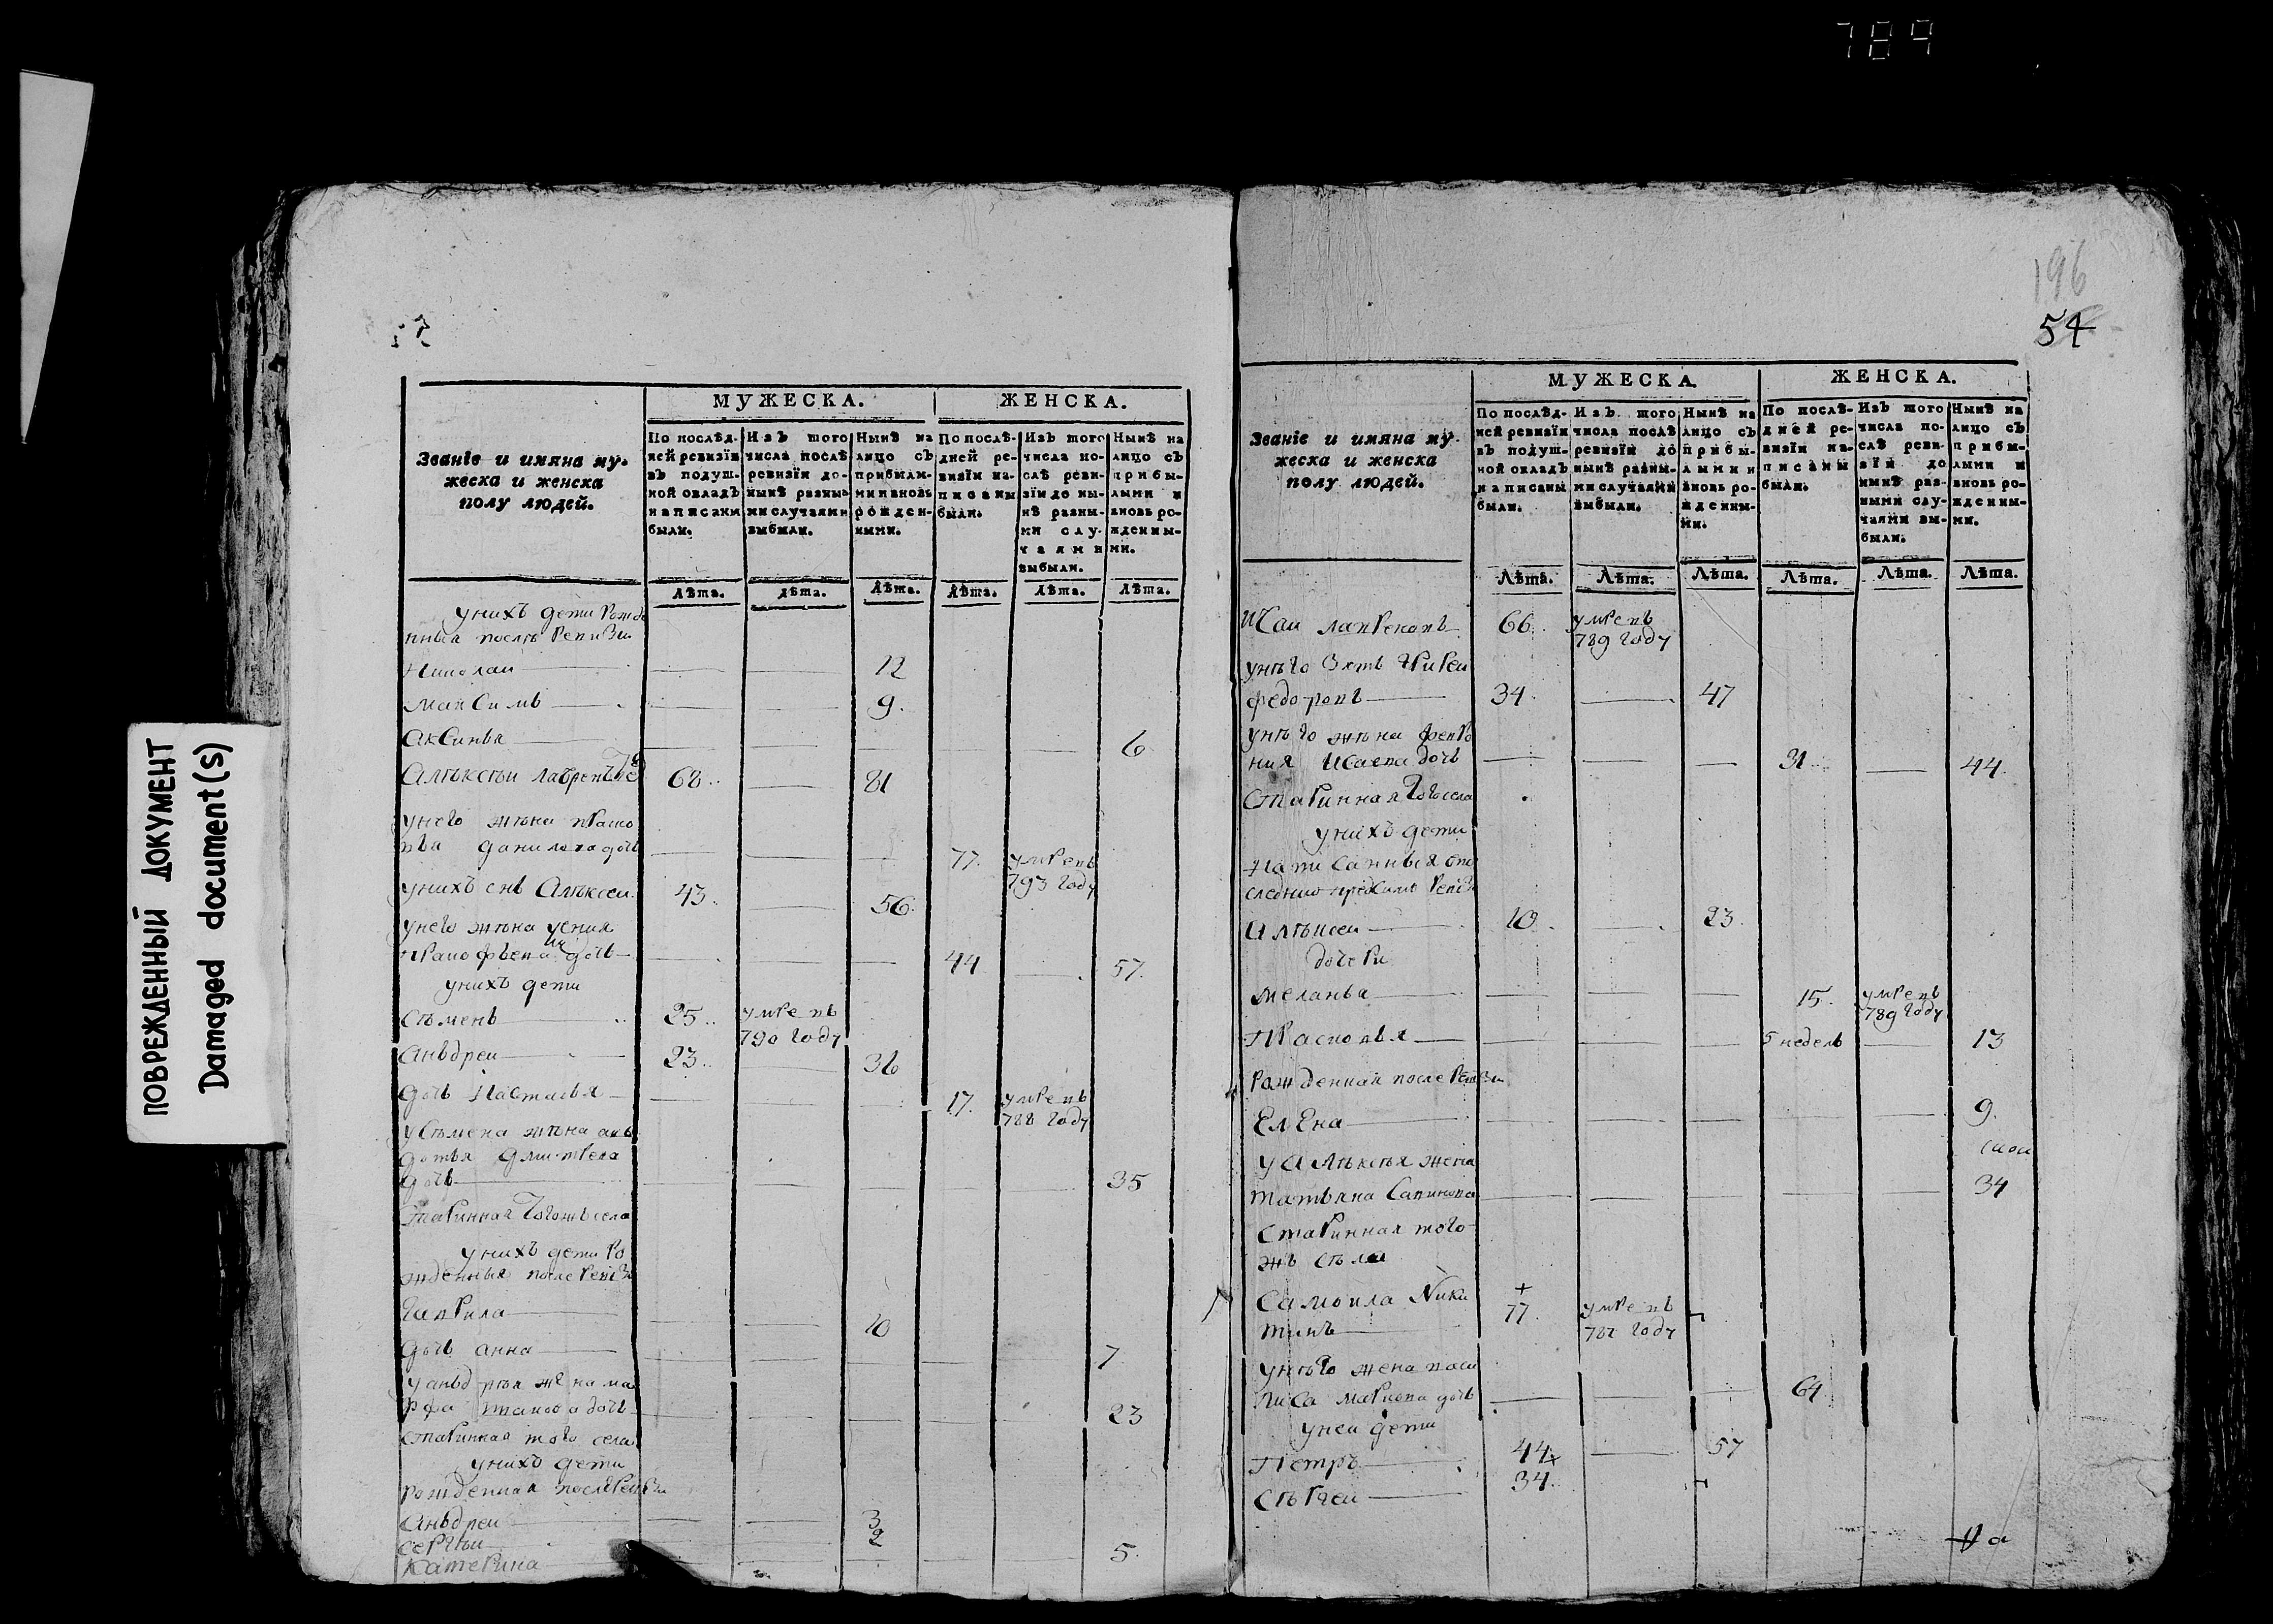 789
ПОВРЕЖДЕННЫЙ ДОКУМЕНТ
Damaged document(s)
Званіе и имяна му-
жеска и женска
полу людей.
МУЖЕСКА.
ЖЕНСКА.
По послѣд-
ней ревизїи
въ подуш-
ной окладъ
написаны
были.
Изъ того
числа послѣ
ревизїи до-
нынѣ разны-
ми случаями
выбыли.
Нынѣ на
лицо съ
прибылы-
ми и вновь
рожден-
ными.
По послѣ-
дней ре-
визїи на-
писаны
были.
Изъ того
числа по-
слѣ реви-
зїи до ны-
нѣ разны-
ми слу-
чаями
выбыли.
Нынѣ на
лицо съ
прибы-
лыми и
вновь ро-
жденны-
ми.
Лѣта. Лѣта. Лѣта. Лѣта. Лѣта. Лѣта.
унихъ дети рожде
нныя послѣ ревизи
Николаи 12
Максимъ 9.
Аксинья 6
Алѣксѣи лавренътѣ 68. 81
унего жѣна праско
вья данилова дочь 77. умревъ
793 году
унихъ снъ Алѣксеи 43. 56.
унего жѣна
дочь 44 57.
унихъ дети
Сѣменъ 25. умревъ
790 году
Анъдреи 23. 36
дочь Настасья 17. умревъ
788 году
уСѣмена жѣна авъ
дотья дмитрева
дочь 35
старинная тогожъ села
унихъ дети ро
жденныя после ревизи
Гаврила 10
дочь анна 7
уаньдрѣя жена ма
рфа дочь 23
старинная того села
унихъ дети
рожденная послѣ ревизи
Анъдреи 3
Сергѣи 2
Катерина 5.
196
54
Званіе и имяна му-
жеска и женска
полу людей.
МУЖЕСКА.
ЖЕНСКА.
По послѣд-
ней ревизїи
въ подуш-
ной окладъ
написаны
были.
Изъ того
числа послѣ
ревизїи до
нынѣ разны-
ми случаями
выбыли.
Нынѣ на
лицо съ
прибы-
лыми и
вновь ро-
жденны-
ми.
По послѣ-
дней ре-
визїи на-
писаны
были.
Изъ того
числа по-
слѣ реви-
зїи до
нынѣ раз-
ными слу-
чаями вы-
были.
Нынѣ на
лицо съ
прибы-
лыми и
вновь ро-
жденны-
ми.
Лѣта. Лѣта. Лѣта. Лѣта. Лѣта. Лѣта.
Исаи лавреновъ 66. умревъ
789 году
унѣго зять
федоровъ 34. 47
унѣго жѣна февро
ния Исаева дочь 31. 44.
старинная того села
унихъ дети
написанныя впо
следнию предъ симъ ревизи
Алѣксеи 10. 23.
дочери
меланья 15. умревъ
789 году
Прасковья 5 недель 13
рожденная после ревизи
Елена 9.
уАлѣксѣя жена
татьяна Савинова 34
старинная того
жъ сѣла
Самоила Ники
тинъ 77. умревъ
787 году
унѣго жена васи
лиса маркова дочь 64.
унеи дети
Петръ 44 57
Сѣргеи 34.
на